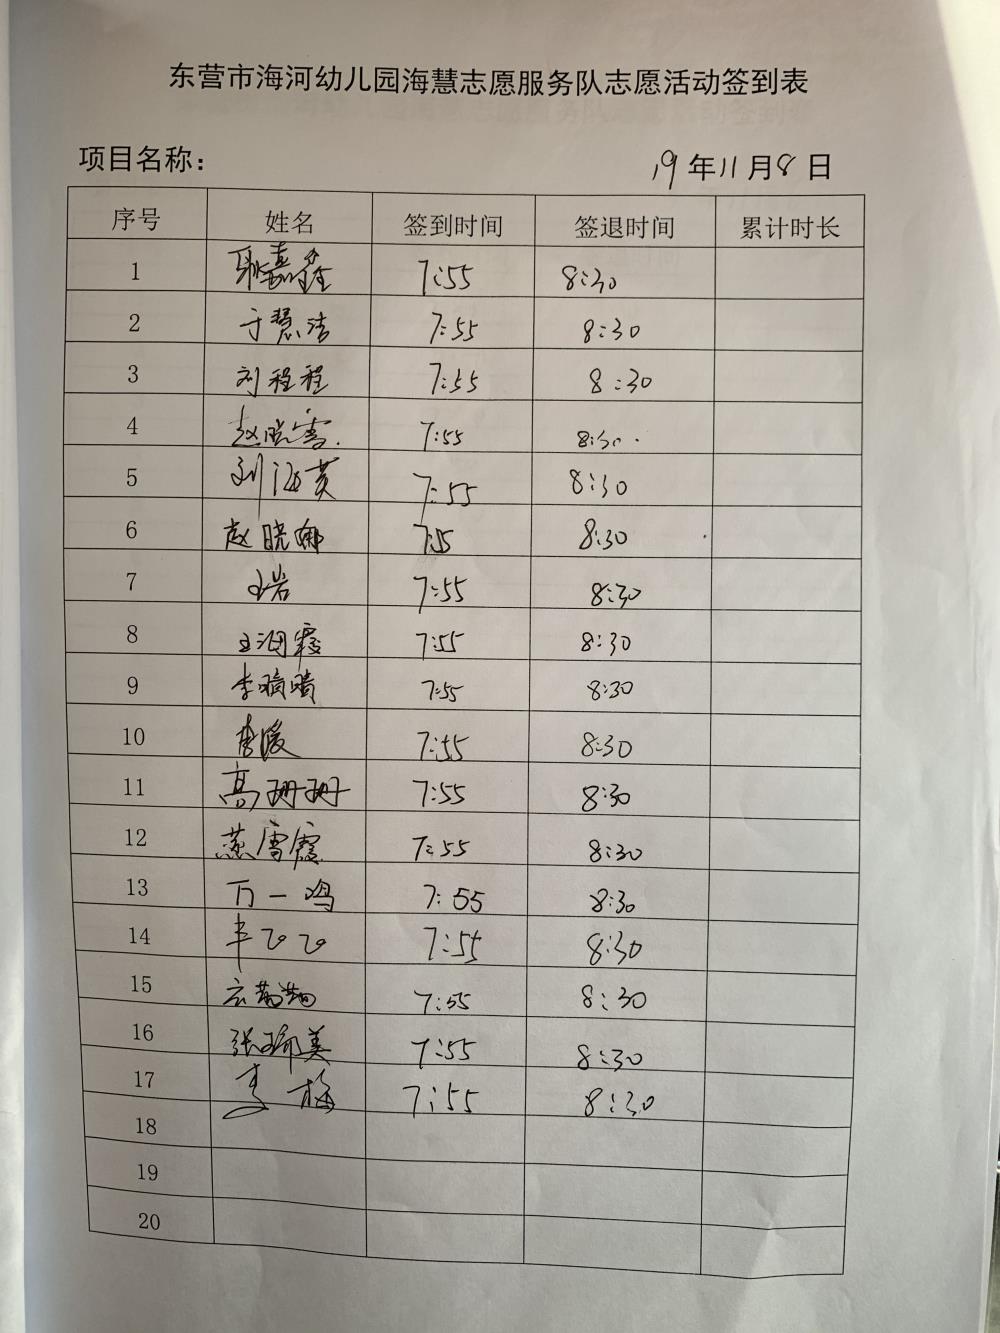 东营市海河幼儿园海慧志愿服务队志愿活动签到表
项目名称： 19年11月8日
序号 姓名 签到时间 签退时间 累计时长
1 耿嘉鑫 7:55 8:30
2 于慧洁 7:55 8:30
3 刘程程 7:55 8:30
4 赵晓雪 7:55 8:30
5 刘海英 7:55 8:30
6 赵晓娜 7:55 8:30
7 王岩 7:55 8:30
8 王润霞 7:55 8:30
9 李晴晴 7:55 8:30
10 李媛 7:55 8:30
11 高珊珊 7:55 8:30
12 燕雪霞 7:55 8:30
13 万一鸣 7:55 8:30
14 7:55 8:30
15 7:55 8:30
16 张瑜美 7:55 8:30
17 李梅 7:55 8:30
18
19
20